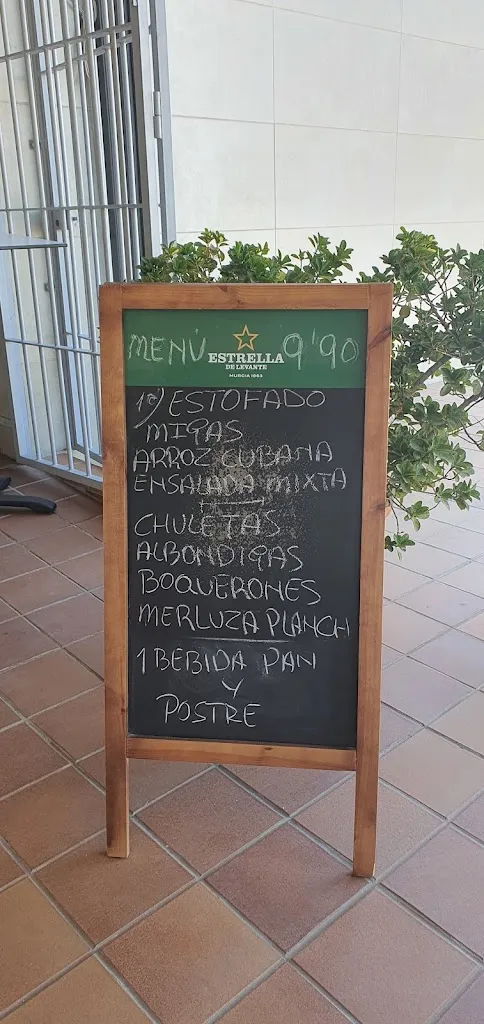 MENÚ 9'90
ESTRELLA
DE LEVANTE
MURCIA 1963
1º) ESTOFADO
MIGAS
ARROZ CUBANA
ENSALADA MIXTA
CHULETAS
ALBONDIGAS
BOQUERONES
MERLUZA PLANCH
1 BEBIDA PAN
Y
POSTRE